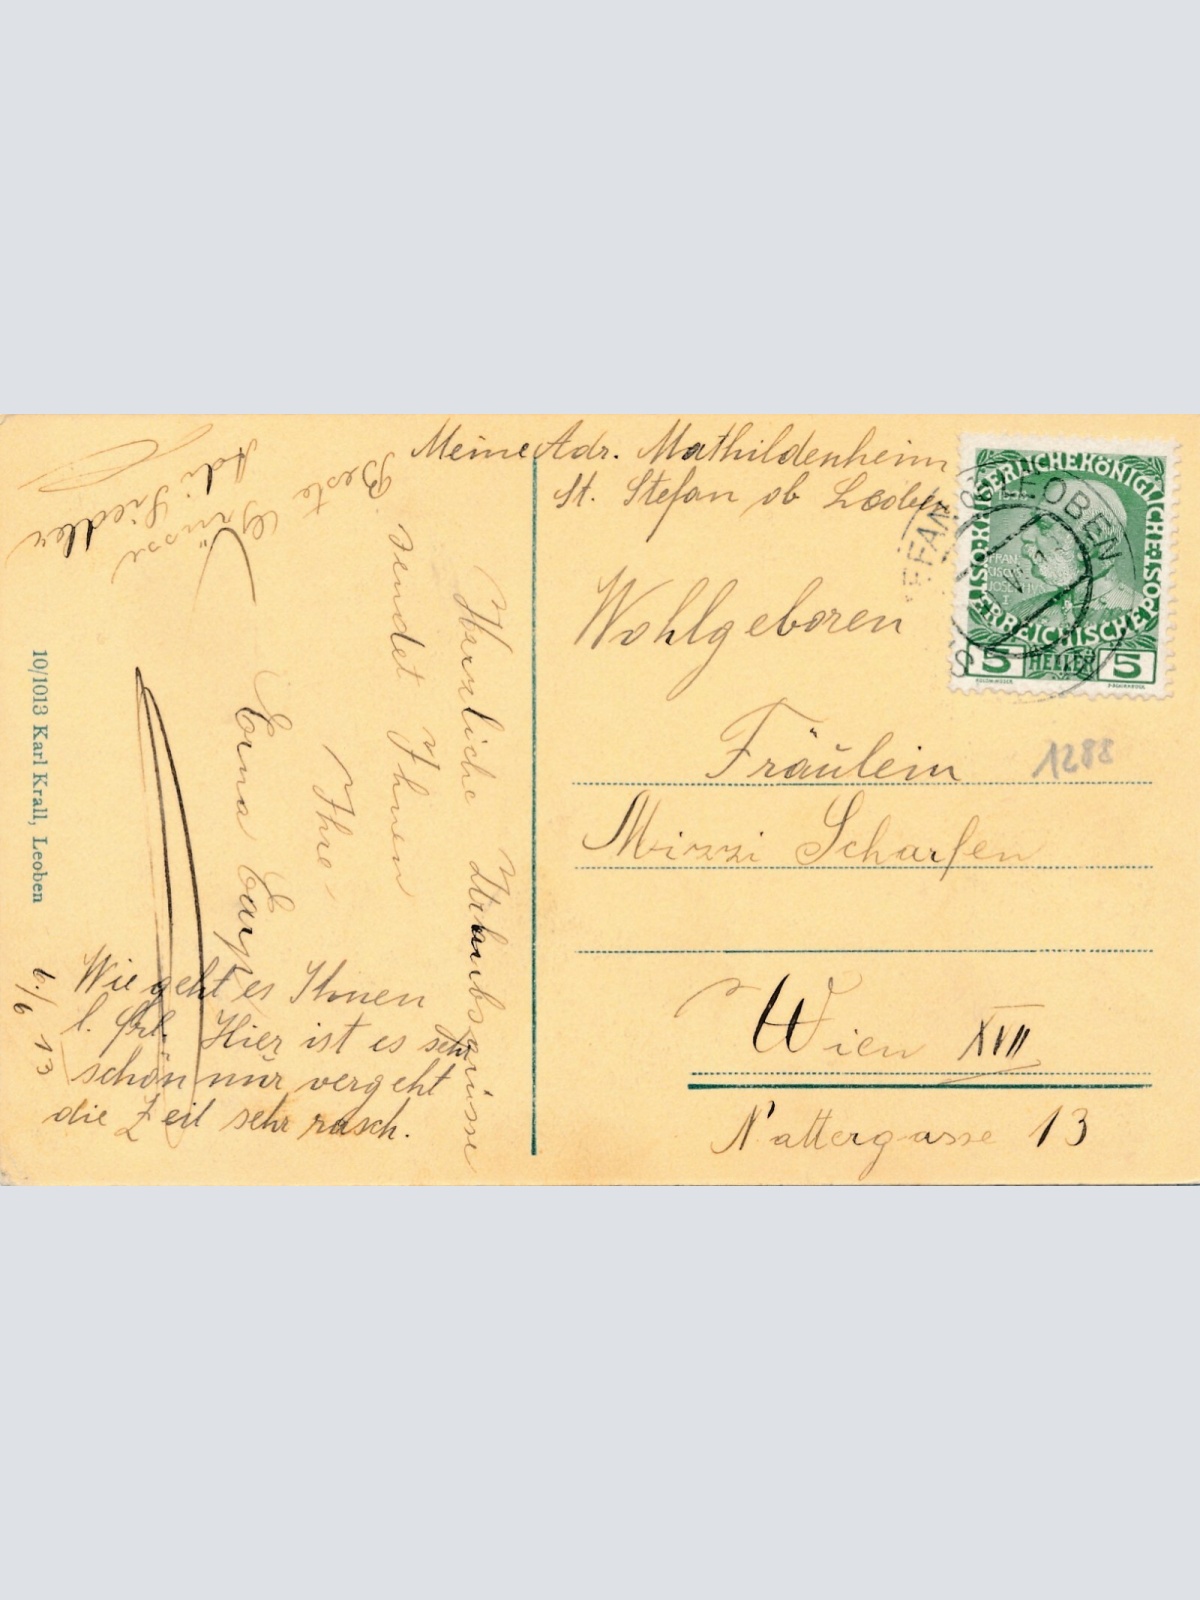 Meine Adr. Mathildenheim
St. Stefan ob Leoben
Wohlgeboren
Fräulein
Mizzi Scharfen
Wien XVII
Nattergasse 13
1288
ÖSTERREICHISCHE POST
KAISERLICHE KÖNIGLICHE
5 HELLER 5
LEOBEN
Herzliche Urlaubsgrüsse
sendet Ihnen
Ihre
Erna
Beste
Grüsse
Wie geht es Ihnen
l. Frl. Hier ist es sehr
schön nur vergeht
die Zeit sehr rasch.
6./6 13
10/1013 Karl Krall, Leoben